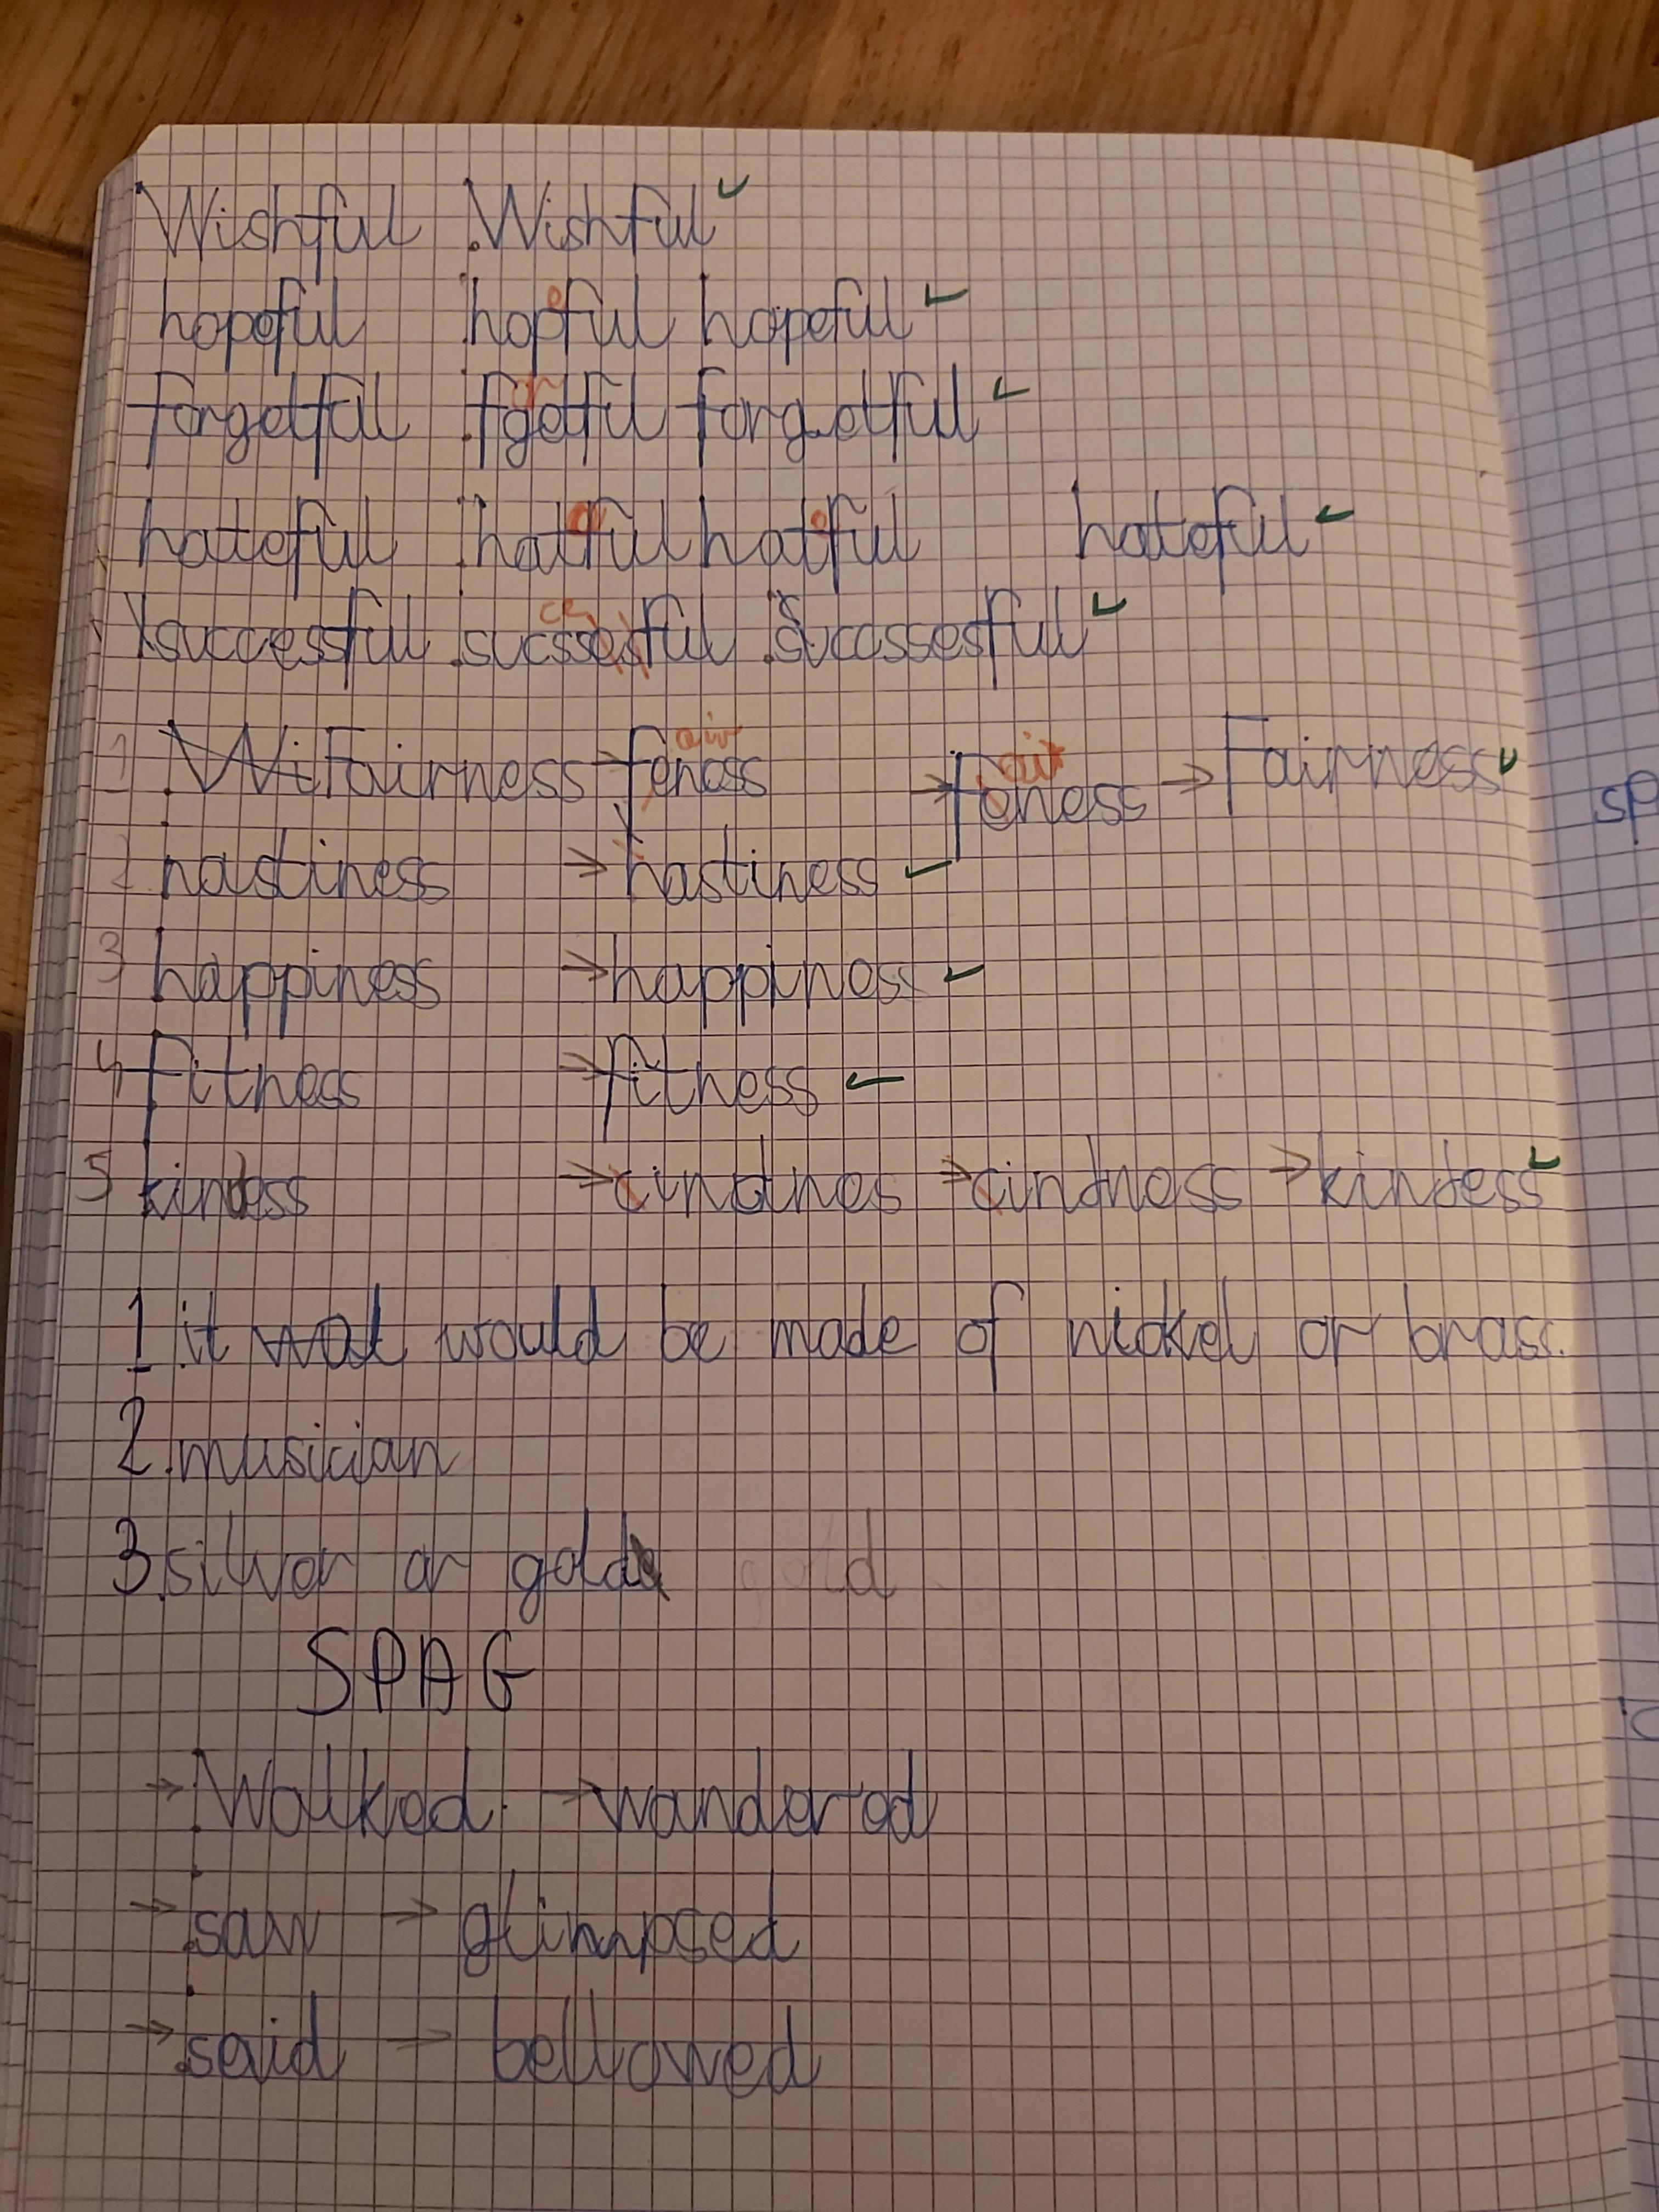 Wishful .Wishful
hopeful hopful e hopeful
forgetful .fgetful or forgetful
hateful hatful e hatful e hateful
successful .sucssesful ce .succssesful
1 Fairness → feness air → feness air → Fairness
2 nastiness → hastiness
3 happiness → happiness
4 Fitness → fitness
5 kindess → cindnes → cindness → kindess
1 it wat would be made of nickel or brass.
2.musician
3.silver or gold gold
SPAG
→ Walked. → wandered
→ saw → glimpsed
→ said → bellowed
sp